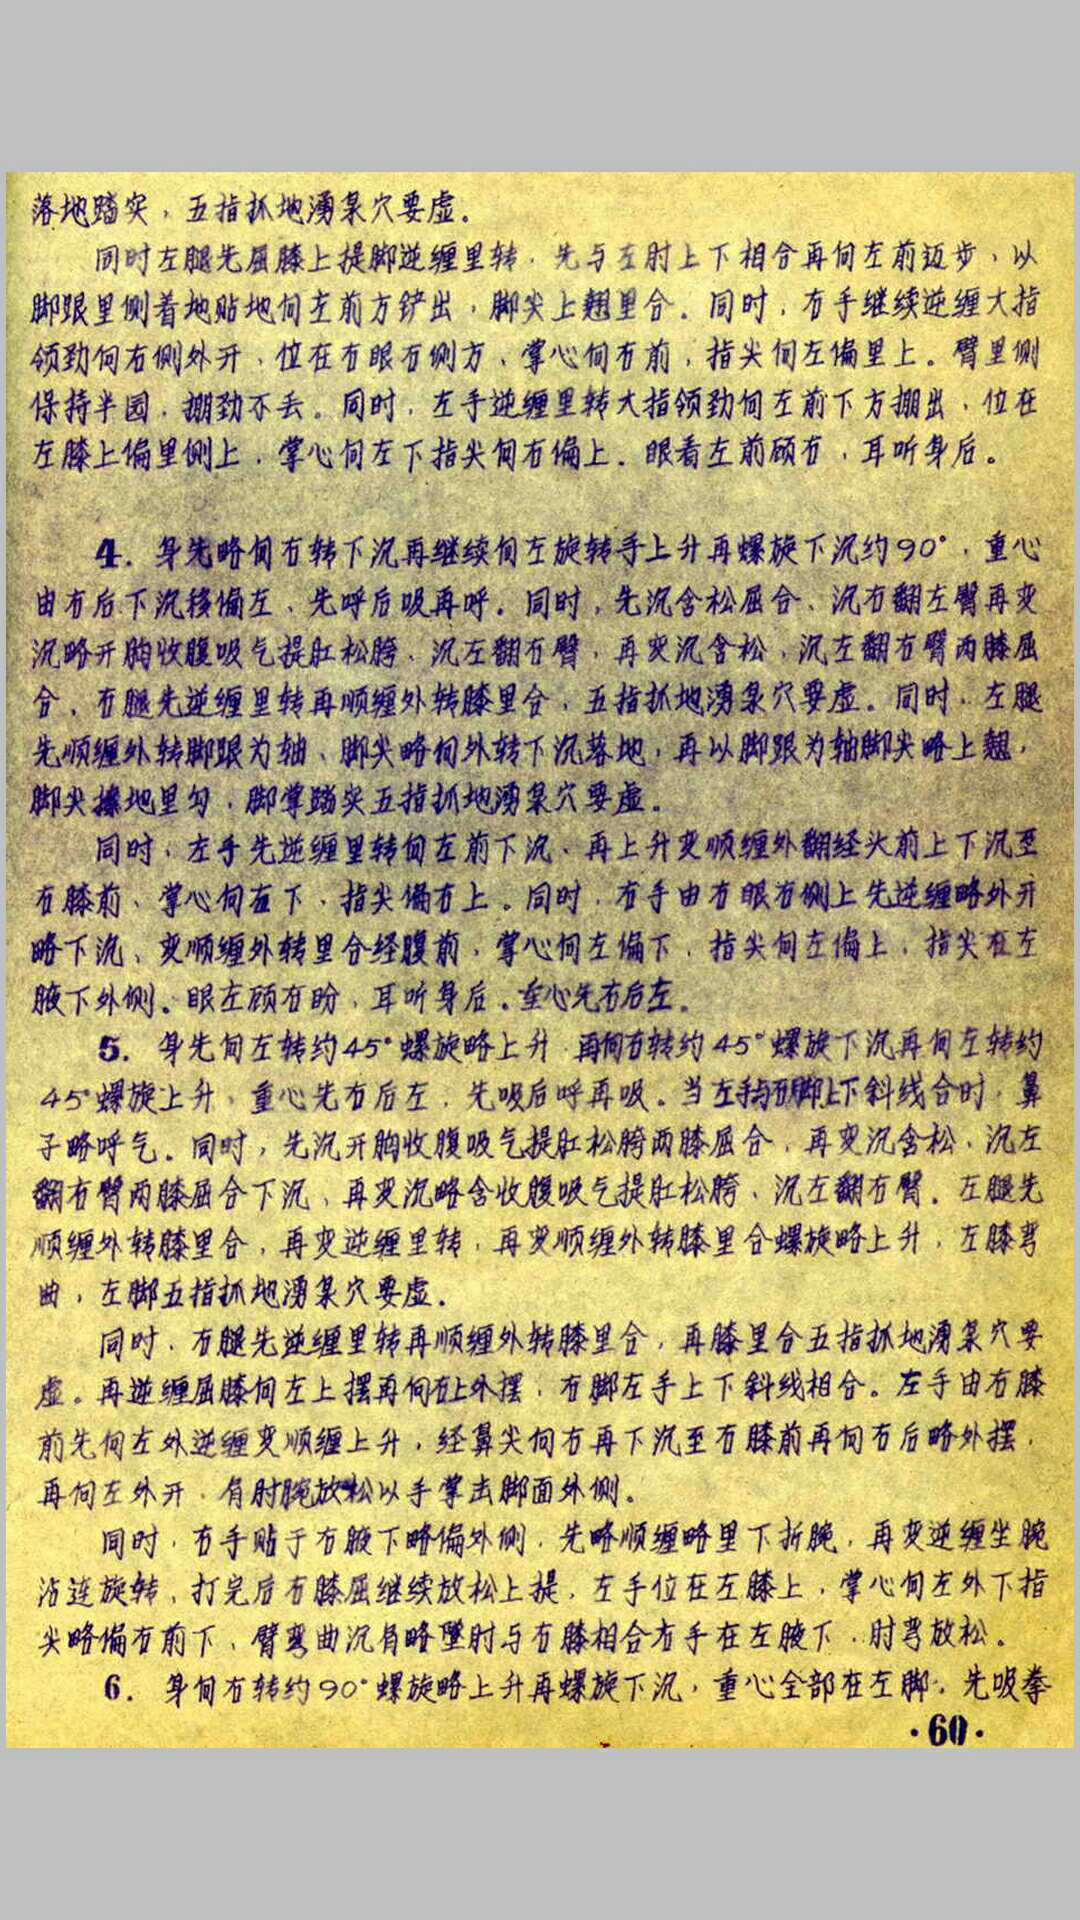 落地踏实，五指抓地湧泉穴要虚。
同时左腿先屈膝上提脚逆缠里转，先与左肘上下相合再向左前迈步，以
脚跟里侧着地贴地向左前方铲出，脚尖上翘里合。同时，右手继续逆缠大指
领劲向右侧外开，位在右眼右侧方，掌心向右前，指尖向左偏里上。臂里侧
保持半园，掤劲不丢。同时，左手逆缠里转大指领劲向左前下方掤出，位在
左膝上偏里侧上，掌心向左下指尖向右偏上。眼看左前顾右，耳听身后。
4. 身先略向右转下沉再继续向左旋转手上升再螺旋下沉约90°，重心
由右后下沉移偏左，先呼后吸再呼。同时，先沉含松屈合，沉右翻左臂再变
沉略开胸收腹吸气提肛松胯，沉左翻右臂，再变沉含松，沉左翻右臂两膝屈
合，右腿先逆缠里转再顺缠外转膝里合，五指抓地湧泉穴要虚。同时，左腿
先顺缠外转脚跟为轴，脚尖略向外转下沉落地，再以脚跟为轴脚尖略上翘，
脚尖擦地里勾，脚掌踏实五指抓地湧泉穴要虚。
同时，左手先逆缠里转向左前下沉，再上升变顺缠外翻经头前上下沉至
右膝前，掌心向右下，指尖偏右上。同时，右手由右眼右侧上先逆缠略外开
略下沉，变顺缠外转里合经腹前，掌心向左偏下，指尖向左偏上，指尖在左
腋下外侧。眼左顾右盼，耳听身后。重心先右后左。
5. 身先向左转约45°螺旋略上升，再向右转约45°螺旋下沉再向左转约
45°螺旋上升，重心先右后左，先吸后呼再吸。当左手与右脚上下斜线合时，鼻
子略呼气。同时，先沉开胸收腹吸气提肛松胯两膝屈合，再变沉含松，沉左
翻右臂两膝屈合下沉，再变沉略含收腹吸气提肛松胯，沉左翻右臂。左腿先
顺缠外转膝里合，再变逆缠里转，再变顺缠外转膝里合螺旋略上升，左膝弯
曲，左脚五指抓地湧泉穴要虚。
同时，右腿先逆缠里转再顺缠外转膝里合，再膝里合五指抓地湧泉穴要
虚。再逆缠屈膝向左上摆再向右上外摆，右脚左手上下斜线相合。左手由右膝
前先向左外逆缠变顺缠上升，经鼻尖向右再下沉至右膝前再向右后略外摆，
再向左外开，肩肘腕放松以手掌击脚面外侧。
同时，右手贴于右腋下略偏外侧，先略顺缠略里下折腕，再变逆缠坐腕
沾连旋转，打完后右膝屈继续放松上提，左手位在左膝上，掌心向左外下指
尖略偏右前下，臂弯曲沉肩略墜肘与右膝相合右手在左腋下，肘弯放松。
6. 身向右转约90°螺旋略上升再螺旋下沉，重心全部在左脚，先吸拳
·60·